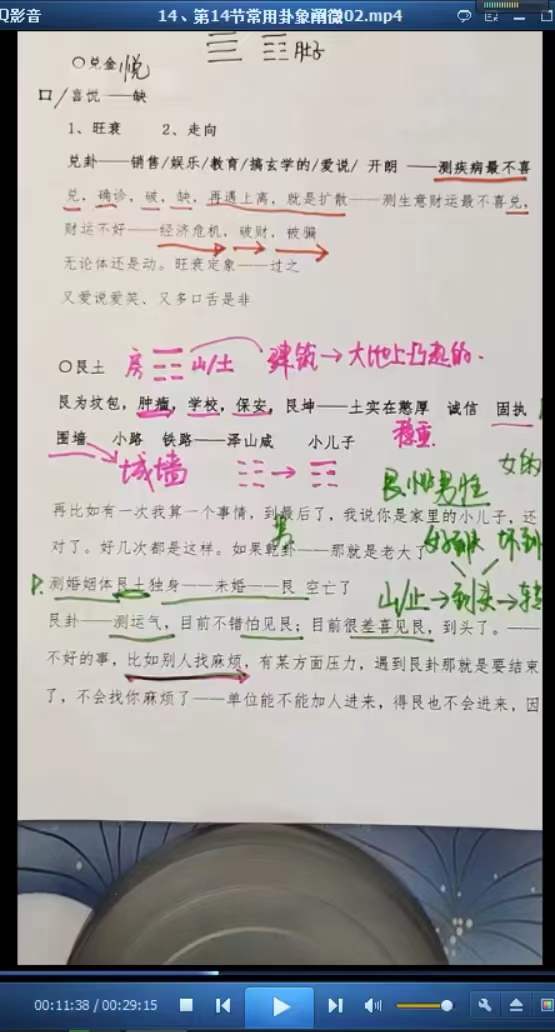 Q影音
14、第14节常用卦象阐微02.mp4
肚子
〇兑金 悦
口/喜悦——缺
1、旺衰 2、走向
兑卦——销售/娱乐/教育/搞玄学的/爱说/ 开朗 ——测疾病最不喜
兑，确诊，破，缺，再遇上离，就是扩散——测生意财运最不喜兑，
财运不好——经济危机，破财，被骗
无论体还是动。旺衰定象——过之
又爱说爱笑、又多口舌是非
〇艮土 房 山/土 建筑→大地上凸起的.
艮为坟包，肿瘤，学校，保安，艮坤——土实在憨厚 诚信 固执
围墙 小路 铁路——泽山咸 小儿子 稳重.
城墙 → 女的
艮卦男性
再比如有一次我算一个事情，到最后了，我说你是家里的小儿子，还
男
对了。好几次都是这样。如果乾卦——那就是老大了 好到头 坏到
测婚姻体艮土独身——未婚——艮 空亡了 山/止→到头→转
艮卦——测运气，目前不错怕见艮；目前很差喜见艮，到头了。——
不好的事，比如别人找麻烦，有某方面压力，遇到艮卦那就是要结束
了，不会找你麻烦了——单位能不能加人进来，得艮也不会进来，因
00:11:38 / 00:29:15